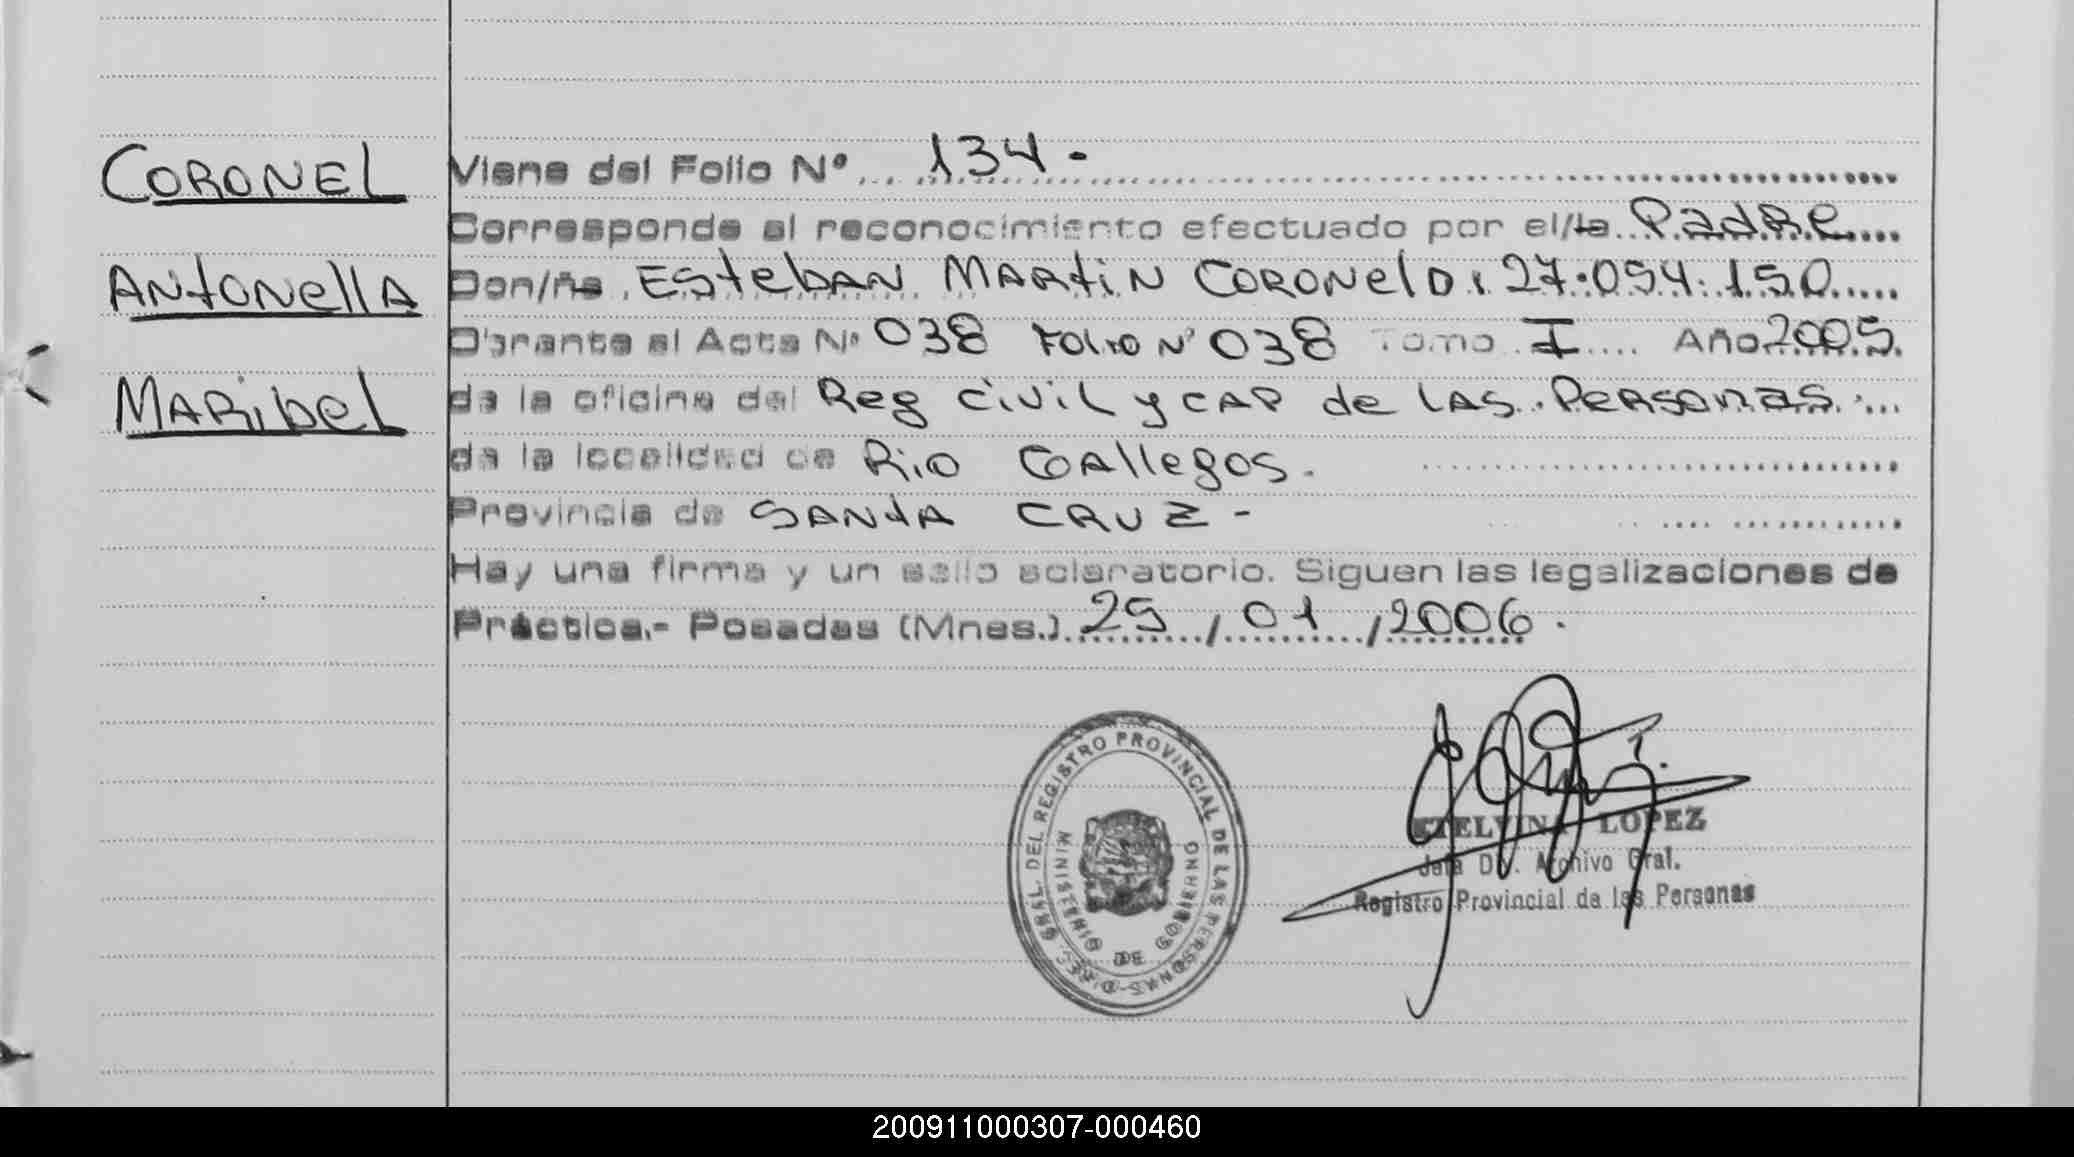 CORONEL
ANTONELLA
MARIBEL
Viene del Folio Nº 134.
Corresponde al reconocimiento efectuado por el/la Padre
Don/ña Esteban Martin Coronel D: 27.054.150
Obrante al Acta Nº 038 Folio Nº 038 Tomo I Año 2005
de la oficina del Reg Civil y CAP de las Personas
de la localidad de Rio Gallegos.
Provincia de Santa Cruz -
Hay una firma y un sello aclaratorio. Siguen las legalizaciones de
Práctica.- Posadas (Mnes.) 25/01/2006.
GRAL. DEL REGISTRO PROVINCIAL DE LAS PERSONAS - DIREC.
MINISTERIO DE GOBIERNO
ETELVINA LOPEZ
Jefa Div. Archivo Gral.
Registro Provincial de las Personas
200911000307-000460